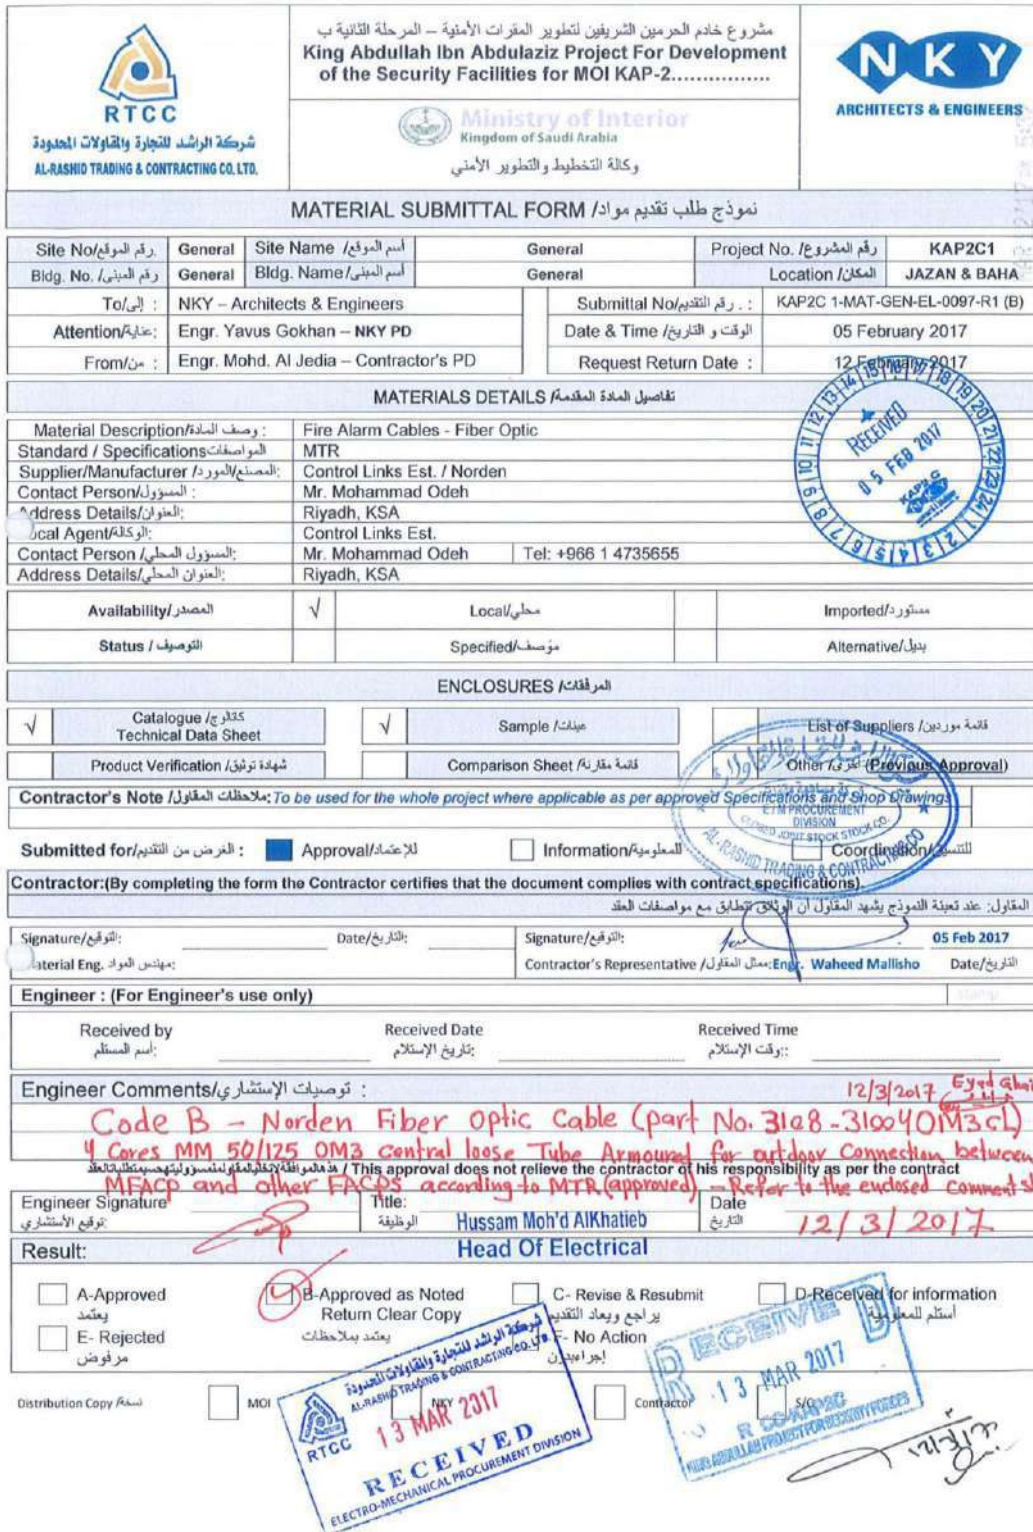 RTCC
شركة الراشد للتجارة والمقاولات المحدودة
AL-RASHID TRADING & CONTRACTING CO. LTD.
مشروع خادم الحرمين الشريفين لتطوير المقرات الأمنية – المرحلة الثانية ب
King Abdullah Ibn Abdulaziz Project For Development
of the Security Facilities for MOI KAP-2................
Ministry of Interior
Kingdom of Saudi Arabia
وكالة التخطيط والتطوير الأمني
NKY
ARCHITECTS & ENGINEERS
MATERIAL SUBMITTAL FORM /نموذج طلب تقديم مواد
Site No/رقم الموقع. General Site Name /أسم الموقع General Project No. /رقم المشروع KAP2C1
Bldg. No. /رقم المبنى General Bldg. Name/أسم المبنى General Location /المكان JAZAN & BAHA
To/إلى : NKY – Architects & Engineers Submittal No/رقم التقديم. : KAP2C 1-MAT-GEN-EL-0097-R1 (B)
Attention/عناية: Engr. Yavus Gokhan – NKY PD Date & Time /الوقت و التاريخ 05 February 2017
From/من : Engr. Mohd. Al Jedia – Contractor's PD Request Return Date : 12 February 2017
MATERIALS DETAILS /تفاصيل المادة المقدمة
Material Description/وصف المادة : Fire Alarm Cables - Fiber Optic
Standard / Specifications المواصفات MTR
Supplier/Manufacturer /المصنع/المورد: Control Links Est. / Norden
Contact Person/المسؤول : Mr. Mohammad Odeh
Address Details/العنوان: Riyadh, KSA
ocal Agent/الوكالة: Control Links Est.
Contact Person /المسؤول المحلي: Mr. Mohammad Odeh Tel: +966 1 4735655
Address Details/العنوان المحلي: Riyadh, KSA
RECEIVED
05 FEB 2017
Availability/المصدر √ Local/محلي Imported/مستورد
Status / التوصيف Specified/مؤصف Alternative/بديل
ENCLOSURES /المرفقات
√ Catalogue /كتالوج
Technical Data Sheet √ Sample /عينات List of Suppliers /قائمة موردين
Product Verification /شهادة توثيق Comparison Sheet /قائمة مقارنة Other /أخرى (Previous Approval)
Contractor's Note /ملاحظات المقاول: To be used for the whole project where applicable as per approved Specifications and Shop Drawings
ETM PROCUREMENT
DIVISION
CLOSED JOINT STOCK STOCK CO.
AL-RASHID TRADING & CONTRACTING CO
Submitted for/الغرض من التقديم : Approval/للإعتماد Information/للمعلومية Coordination/للتنسيق
Contractor:(By completing the form the Contractor certifies that the document complies with contract specifications).
المقاول: عند تعبئة النموذج يشهد المقاول أن الوثائق تتطابق مع مواصفات العقد
Signature/التوقيع: Date/التاريخ: Signature/التوقيع: 05 Feb 2017
aterial Eng. مهندس المواد: Contractor's Representative /ممثل المقاول: Engr. Waheed Mallisho Date/التاريخ
Engineer : (For Engineer's use only)
Received by Received Date Received Time
أسم المستلم: تاريخ الإستلام: وقت الإستلام::
Engineer Comments/توصيات الإستشاري : 12/3/2017
Code B – Norden Fiber optic Cable (part No. 3108-31004OM3CL)
4 Cores MM 50/125 OM3 central loose Tube Armoured for outdoor Connection between
/ This approval does not relieve the contractor of his responsibility as per the contract
MFACP and other FACPS according to MTR (approved) – Refer to the enclosed comment
Engineer Signature Title: Date
توقيع الأستشاري الوظيفة Hussam Moh'd AlKhatieb التاريخ 12/3/2017
Result: Head Of Electrical
A-Approved B-Approved as Noted C- Revise & Resubmit D-Received for information
يعتمد Return Clear Copy يراجع ويعاد التقديم أستلم للمعلومية
E- Rejected يعتمد بملاحظات F- No Action
مرفوض
Distribution Copy /نسخة MOI NKY Contractor S/O
شركة الراشد للتجارة والمقاولات المحدودة
AL-RASHID TRADING & CONTRACTING CO. LTD
RTCC
13 MAR 2017
RECEIVED
ELECTRO-MECHANICAL PROCUREMENT DIVISION
RECEIVED
13 MAR 2017
KING ABDULLAH PROJECT FOR SECURITY FORCES